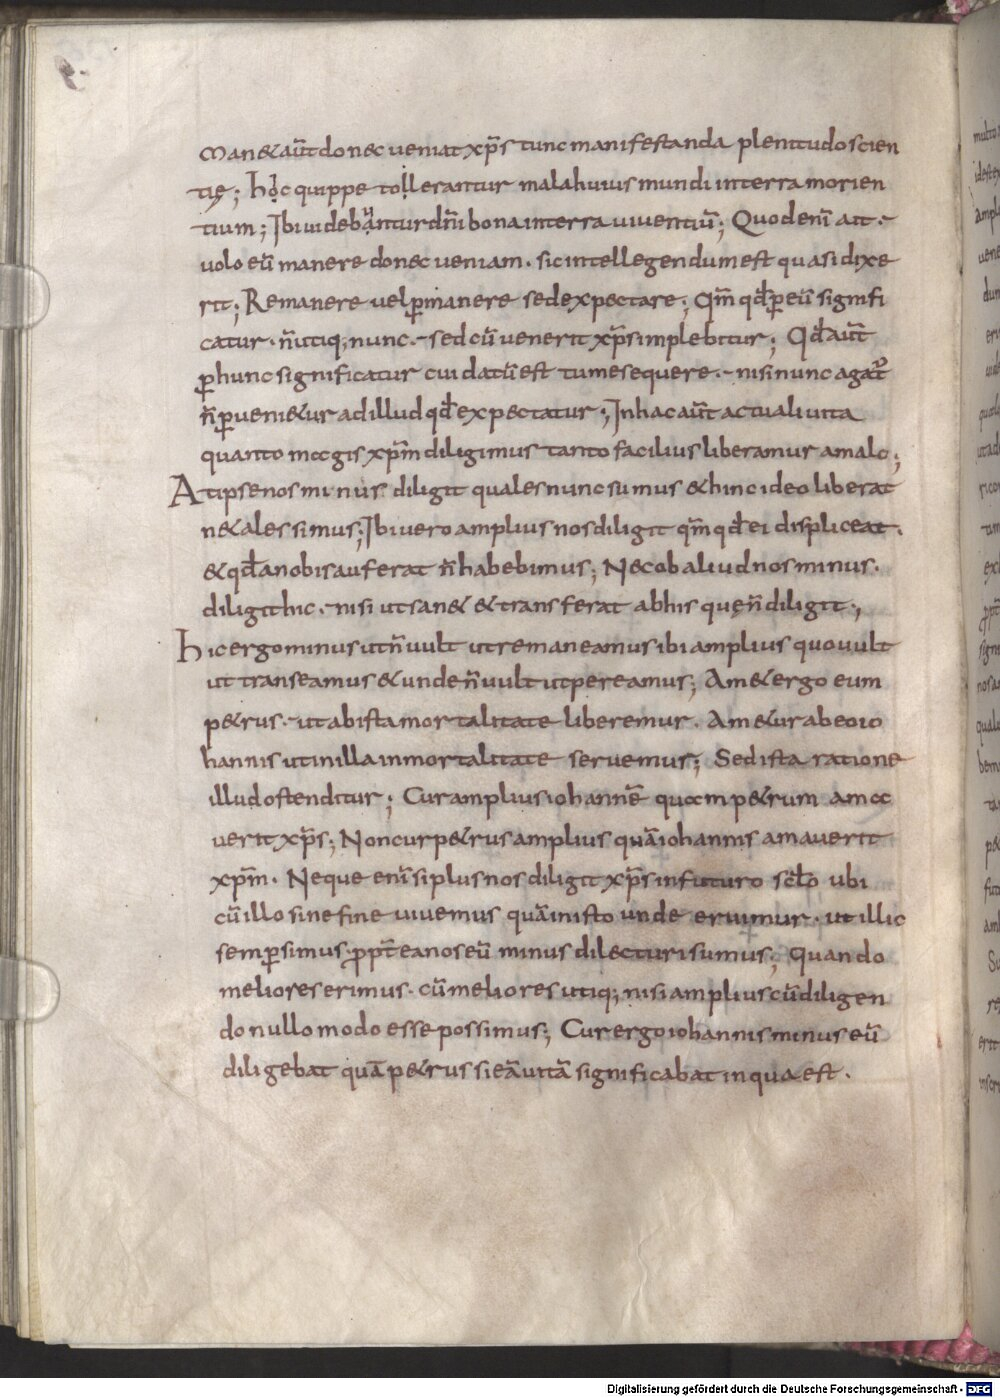 Man&aut̄ donec ueniat xp̄s tunc manifestanda plenitudo scien
tię; hoc quippe tollerantur mala huius mundi in terra morien
tium; Ibi uidebuntur dn̄i bona in terra uiuentiū; Quod enī ait ·
uolo eū manere donec ueniam · sic intellegendum est quasi dixe
rit; Remanere uel ꝑmanere sed expectare; Qm̄ qđ ꝑ eū signifi
catur · n̄ utiq; nunc · sed cū uenerit xp̄s implebitur; Qđ aut̄
ꝑ hunc significatur cui datū est tu me sequere · nisi nunc agat᷑
n̄ ꝑueni&ur ad illud qđ expectatur; In hac aut̄ actuali uita
quanto magis xp̄m diligimus tanto facilius liberamur a malo;
At ipse nos minus diligit quales nunc sumus & hinc ideo liberat
n& ales simus; Ibi uero amplius nos diligit qm̄ qđ ei displiceat ·
& qđ a nobis auferat n̄ habebimus; Nec ob aliud nos minus ·
diligit hic · nisi ut san& & transferat ab his quę n̄ diligit;
Hic ergo minus ut n̄ uult ut remaneamus ibi amplius quo uult
ut transeamus & unde n̄ uult ut pereamus; Am& ergo eum
p&rus · ut ab ista mortalitate liberemur · Am&ur ab eo io
hannis ut in illa inmortalitate seruemus; Sed ista ratione
illud ostenditur; Cur amplius iohannē quam p&rum ama
uerit xp̄s; Non cur p&rus amplius quā iohannis amauerit
xp̄m · Neque enī si plus nos diligit xp̄s in futuro sc̄lo ubi
cū illo sine fine uiuemus quā in isto unde eruimur · ut illic
semꝑ simus · ꝓpt̄ ea nos eū minus dilecturi sumus; Quando
meliores erimus · cū meliores utiq; nisi amplius cū diligen
do nullo modo esse possimus; Cur ergo iohannis minus eū
diligebat quā p&rus si eā uitā significabat in qua est ·